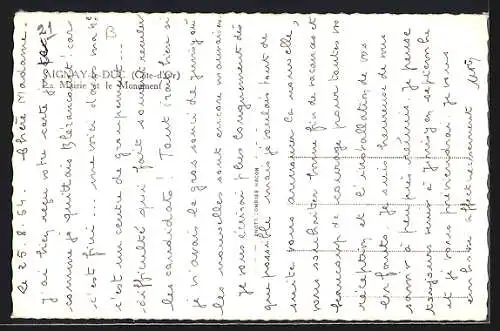 AIGNAY-le-DUC (Côte-d'Or)
La Mairie et le Monument
PHOTO COMBIER MACON
Le 25.8.64. Chère Madame.
J'ai bien reçu votre carte
comme je quittais car
c'est fini me voici dans ma
c'est un centre de groupement
difficulté qui fait souvent reculer
les candidats! Tout irait bien si
je n'avais le gros souci de
les nouvelles sont encore mauvaises
je vous écrirai plus longuement dès
que possible mais je voulais tout de
suite vous annoncer la nouvelle,
vous souhaiter bonne fin de vacances et
beaucoup de courage pour toutes vos
réception et l'installation de vos
je suis heureuse de nous
savoir à peu près réunies. Je pense
toujours venir à Joinville en septembre
et je vous préviendrai. Je vous
embrasse affectueusement